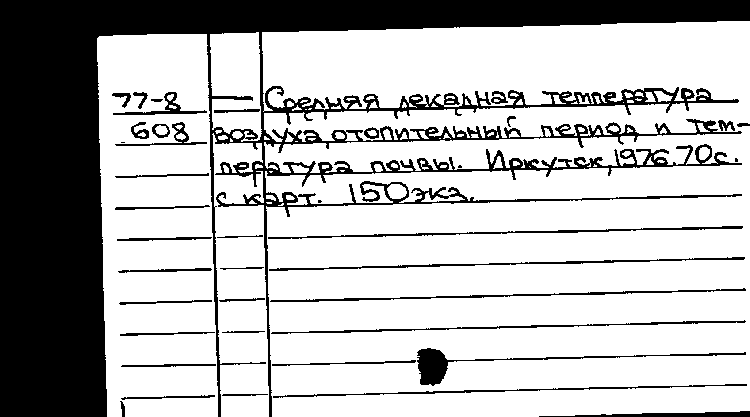 77-8 — Средняя декадная температура
608 воздуха, отопительный период и тем-
пература почвы. Иркутск, 1976. 70с.
с карт. 150экз.